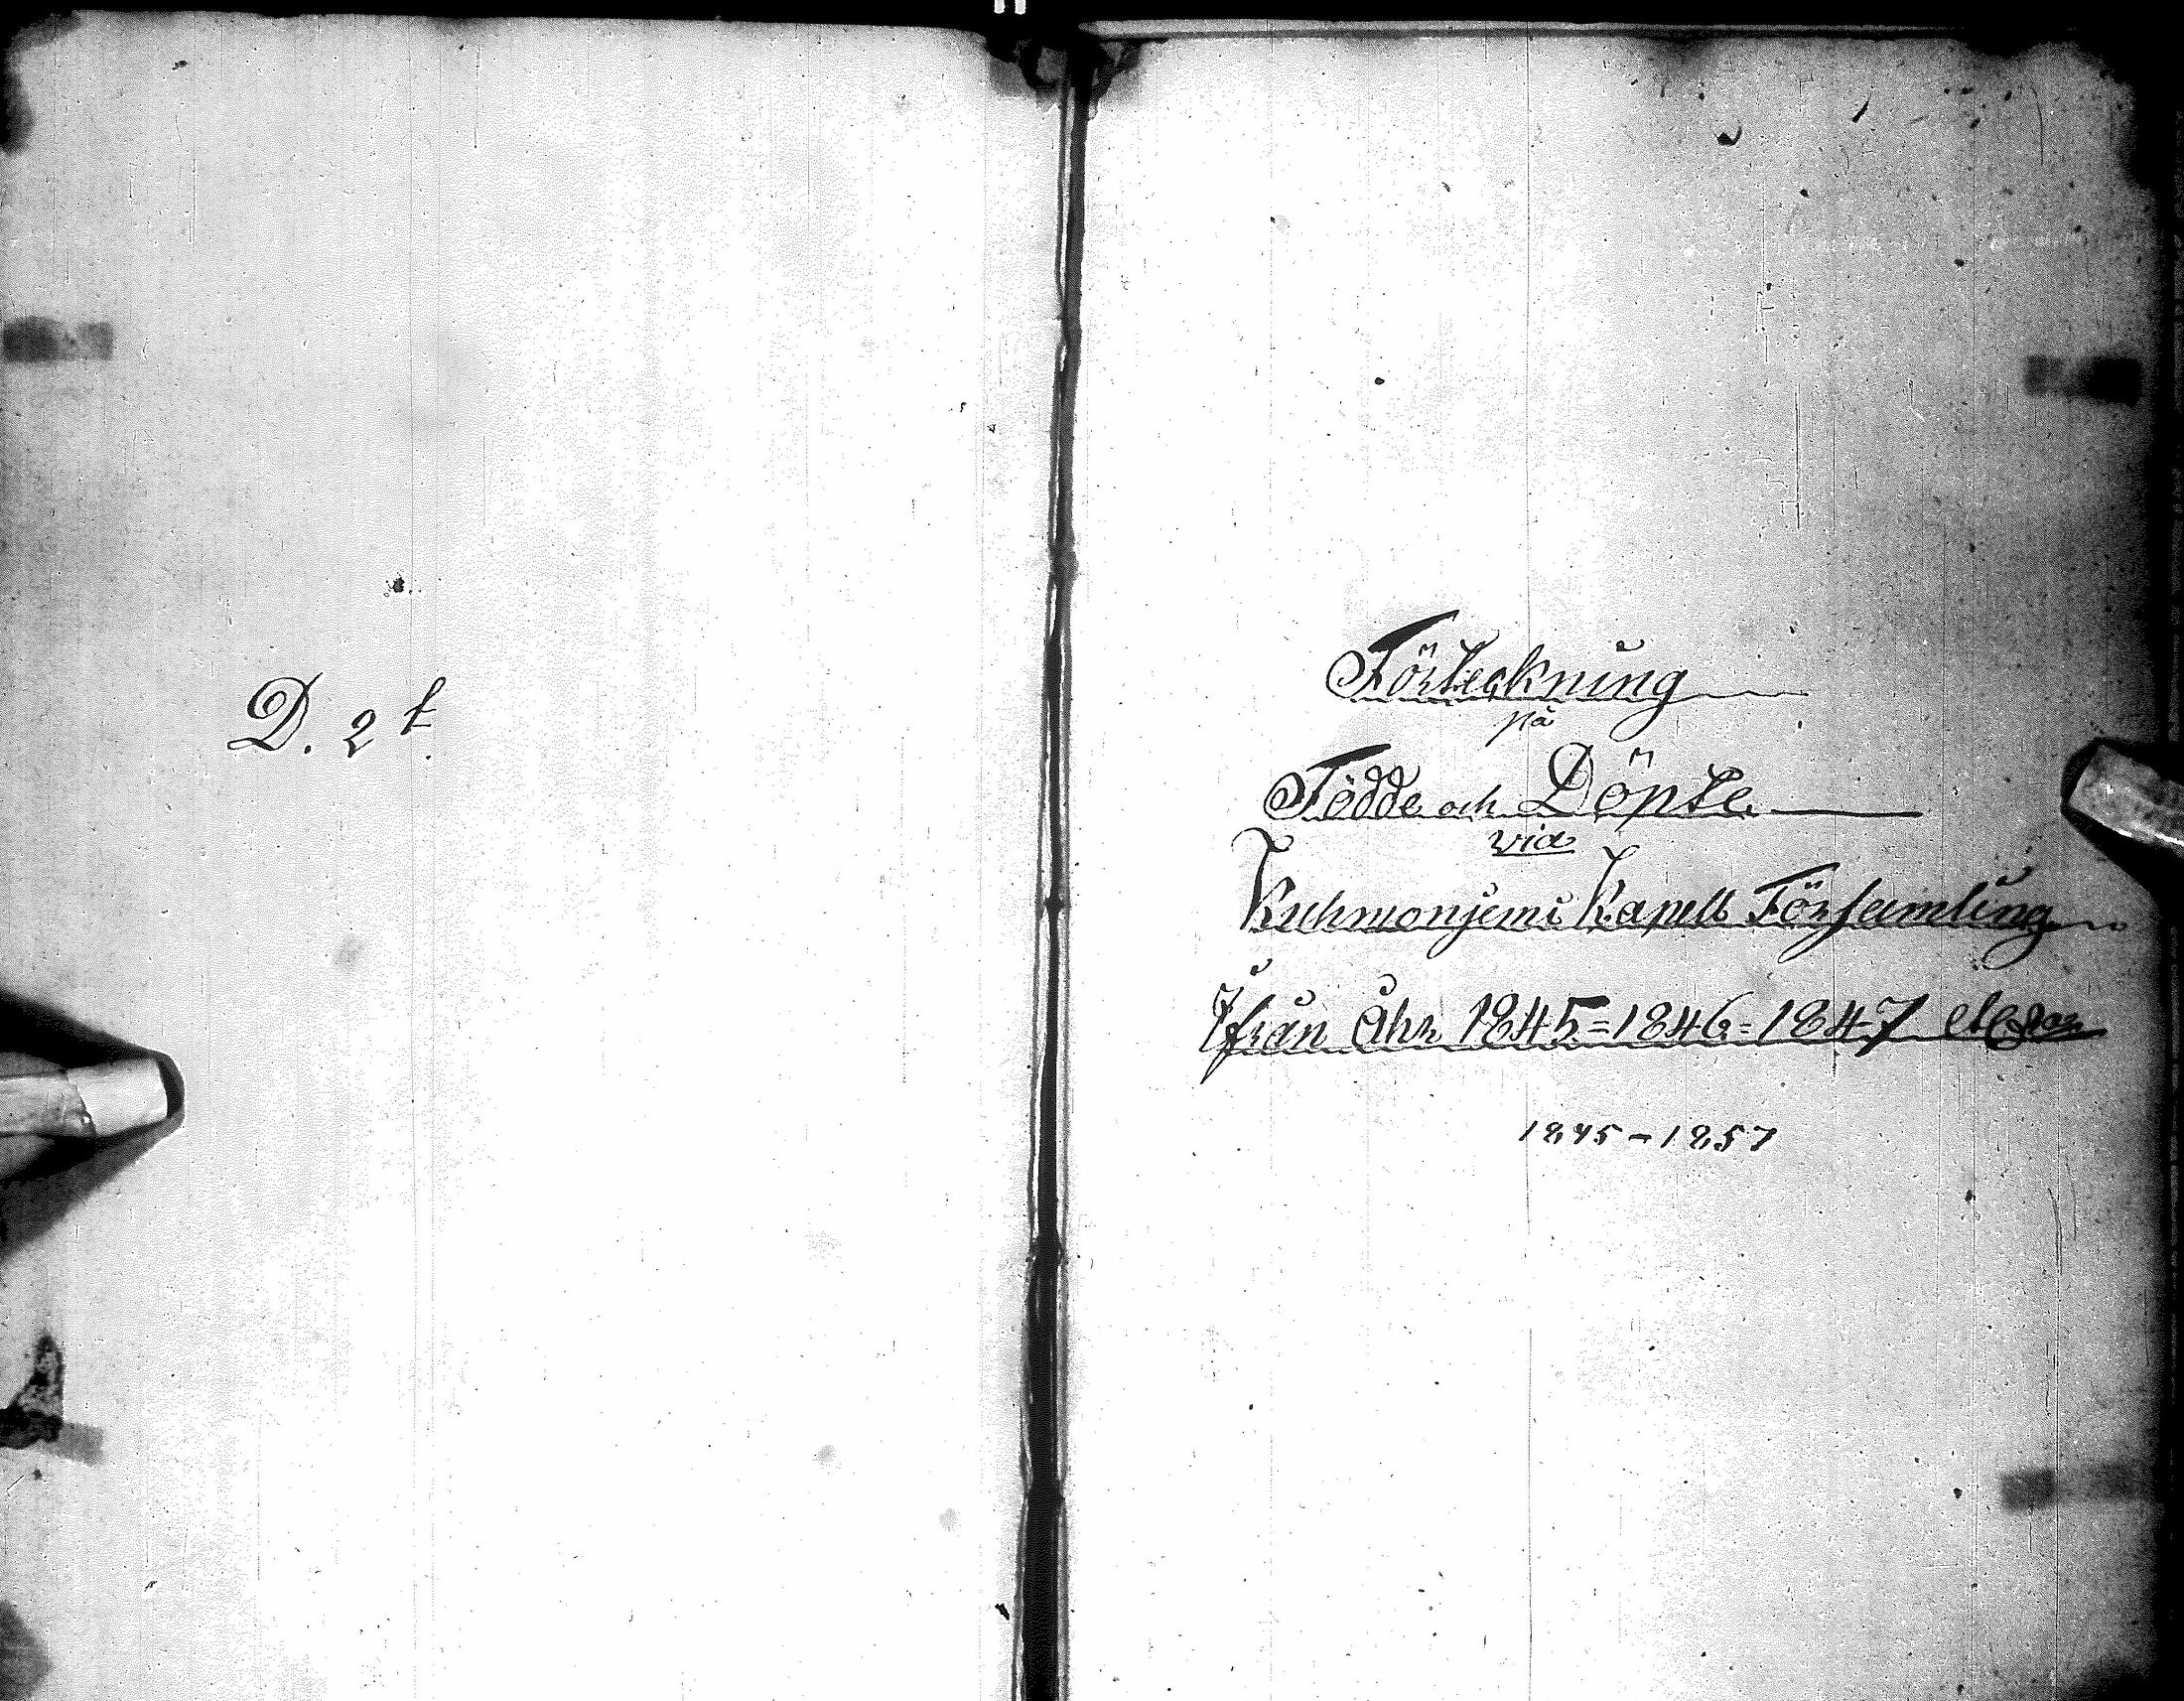 D. 2
Förteckning
på
Födde och Döpte
vid
Kuhmonjemi Kapell Församling
Ifrån Åhr 1845=1846=1847
1845-1857